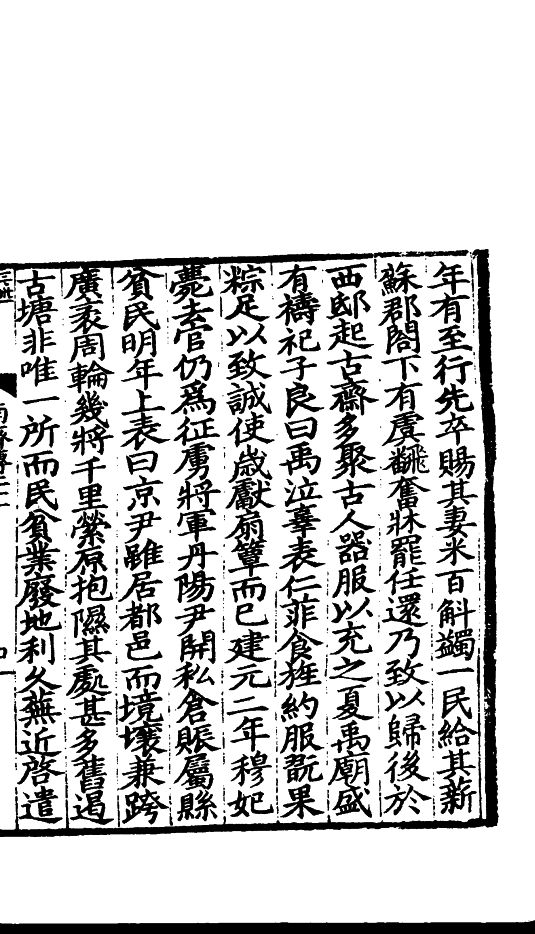 年有至行先卒賜其妻米百斛蠲一民給其薪
蘇郡閤下有虞翻舊牀罷任還乃致以歸後於
西邸起古齋多聚古人器服以充之夏禹廟盛
有禱祀子良曰禹泣辜表仁菲食旌約服翫果
粽足以致誠使歲獻扇簟而已建元二年穆妃
薨去官仍爲征虜將軍丹陽尹開私倉賑屬縣
貧民明年上表曰京尹雖居都邑而境壤兼跨
廣袤周輪幾將千里縈原抱隰其處甚多舊遏
古塘非唯一所而民貧業廢地利久蕪近啓遣